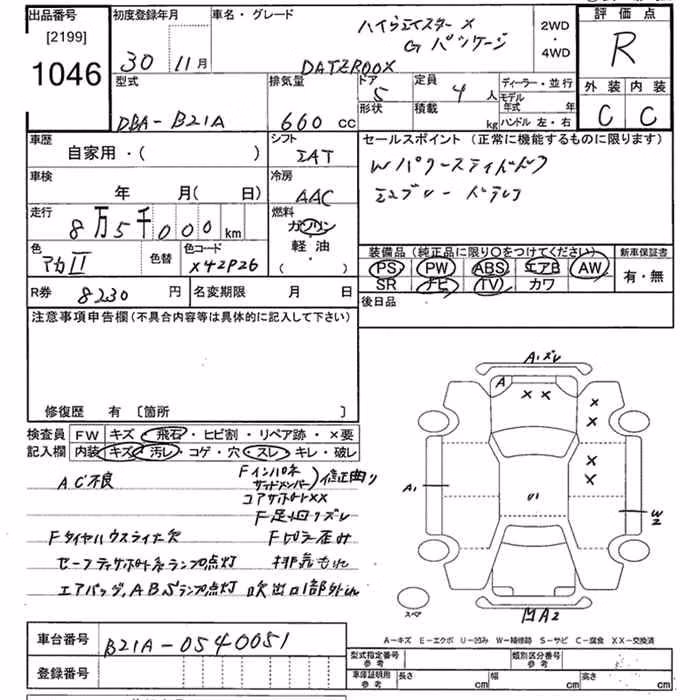 出品番号 初度登録年月 車名・グレード 評価点
[2199] ハイウェイスター X 2WD
1046 30 11月 Gパッケージ ・4WD R
DAYZROOX
型式 排気量 ドア 5 定員 4人 ディーラー・並行 外装 内装
DBA-B21A 660cc 形状 積載 kg モデル年式 年 C C
ハンドル 左・右
車歴 シフト セールスポイント (正常に機能するものに限ります)
自家用・( ) IAT Wパワースライドドア
車検 冷房 エマブレー
年 月( 日) AAC
走行 燃料
8万5千000km ガソリン
色 色替 色コード 軽油 装備品 (純正品に限り○をつけてください) 新車保証書
アカII X42P26 ・( ) PS PW ABS エアB AW 有・無
R券 8230円 名変期限 月 日 SR ナビ TV カワ
後日品
注意事項申告欄 (不具合内容等は具体的に記入して下さい)
修復歴 有 [箇所 ]
A1ズレ
A
× ×
×
×
×
×
A1
U1
W2
MA2
スペア
検査員 FW キズ・飛石・ヒビ割・リペア跡・×要
記入欄 内装 キズ・汚レ・コゲ・穴・スレ・キレ・破レ
AC不良 Fインパネ
サイドメンバー)修正曲り
コアサポートXX
F足回リズレ
Fタイヤハウスライナー欠 Fフロア歪み
セーフティサポート系ランプ点灯 排気もれ
エアバッグ、ABSランプ点灯 吹出口1部外れ
A-キズ E-エクボ U-凹み W-補修跡 S-サビ C-腐食 XX-交換済
車台番号 B21A-0540051
型式指定番号 参考 類別区分番号 参考
登録番号 車庫証明用 参考 長さ cm 幅 cm 高さ cm